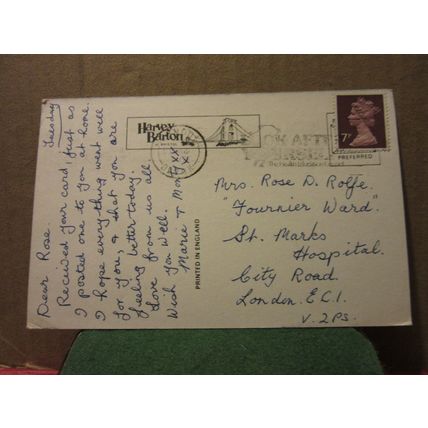 Tuesday
Dear Rose
Recieved your card, just as
I posted one to you at home.
I hope everything went well
for you, & that you are
feeling better today.
Love from us all
Wish you Well.
Marie T Mon xxx
x
Harvey
Barton
OF BRISTOL
PRINTED IN ENGLAND
7P
PREFERRED
Mrs. Rose D. Rolfe.
"Fournier Ward".
St. Marks
Hospital.
City Road.
London. E.C.1.
V.2PS.